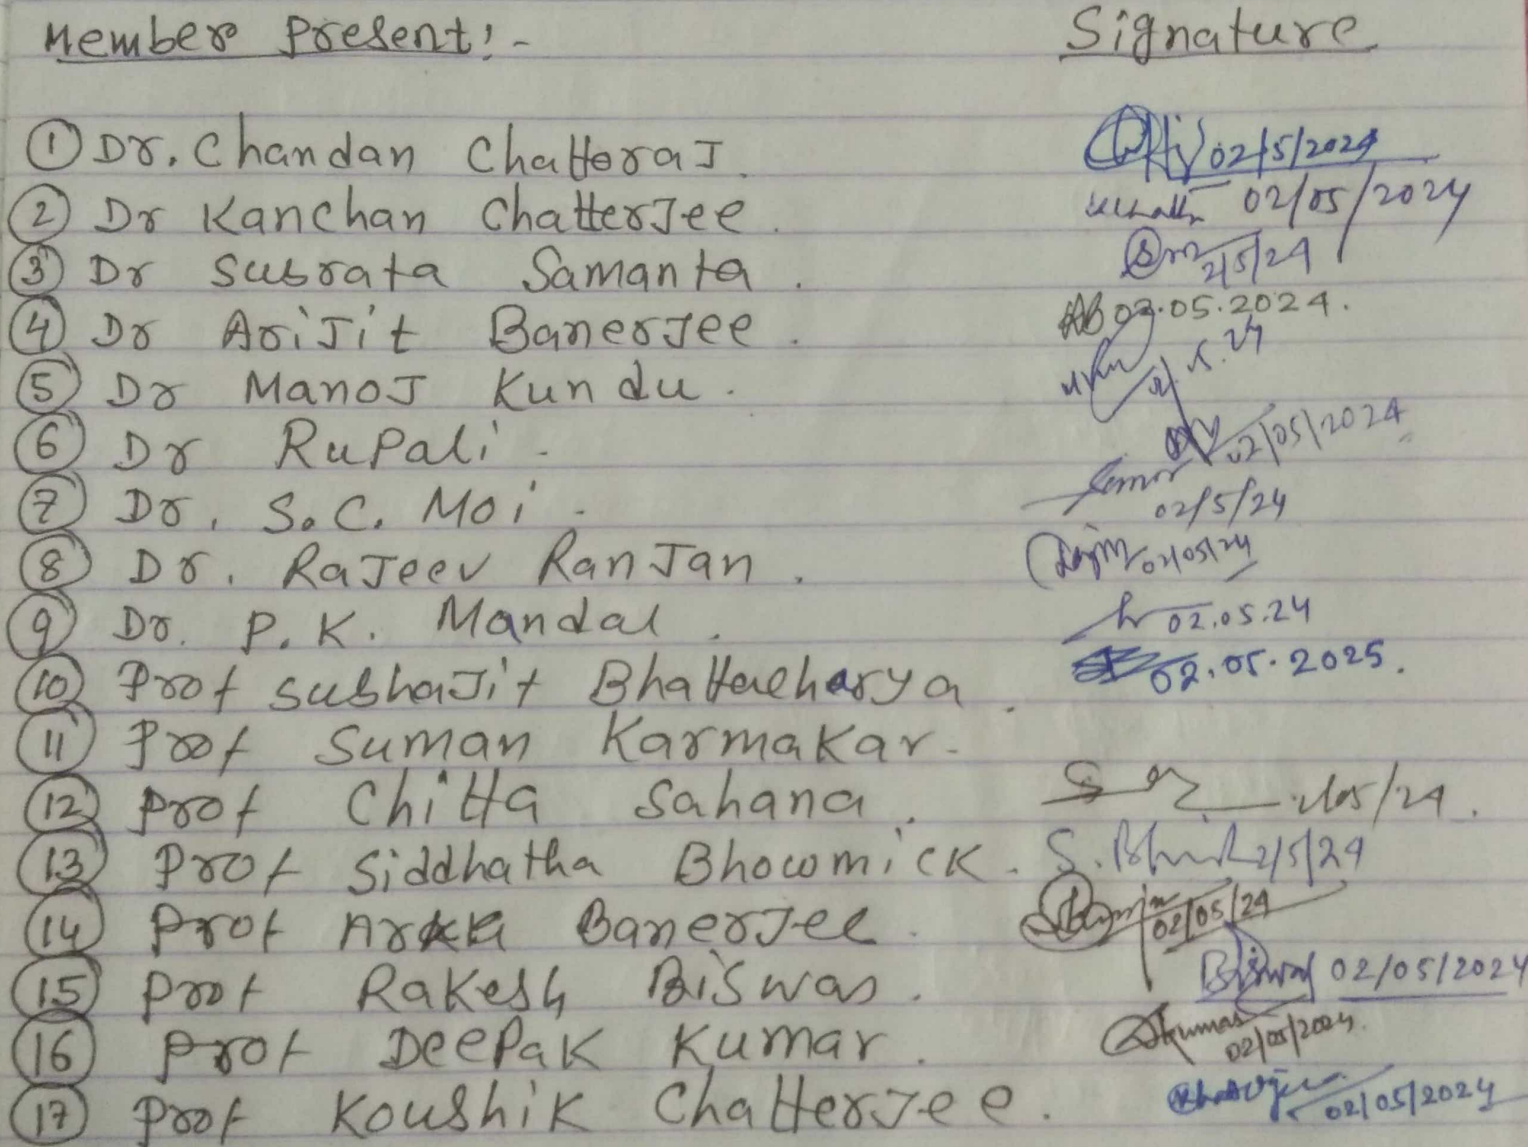 Member Present:- Signature
① Dr. Chandan Chattoraj. 02/5/2024
② Dr Kanchan Chatterjee. 02/05/2024
③ Dr Subrata Samanta. 2/5/24
④ Dr Arijit Banerjee. AB 02.05.2024.
⑤ Dr Manoj Kundu.
⑥ Dr Rupali. 02/05/2024
⑦ Dr. S.C. Moi. 02/5/24
⑧ Dr. Rajeev Ranjan. 02/05/24
⑨ Dr. P.K. Mandal. 02.05.24
⑩ Prof Subhajit Bhattacharya. 02.05.2025.
⑪ Prof Suman Karmakar.
⑫ Prof Chitta Sahana.
⑬ Prof Siddhatha Bhowmick. S. 2/5/24
⑭ Prof Arka Banerjee. 02/05/24
⑮ Prof Rakesh Biswas. Biswas 02/05/2024
⑯ Prof Deepak Kumar. Dkumar 02/05/2024.
⑰ Prof Koushik Chatterjee. 02/05/2024